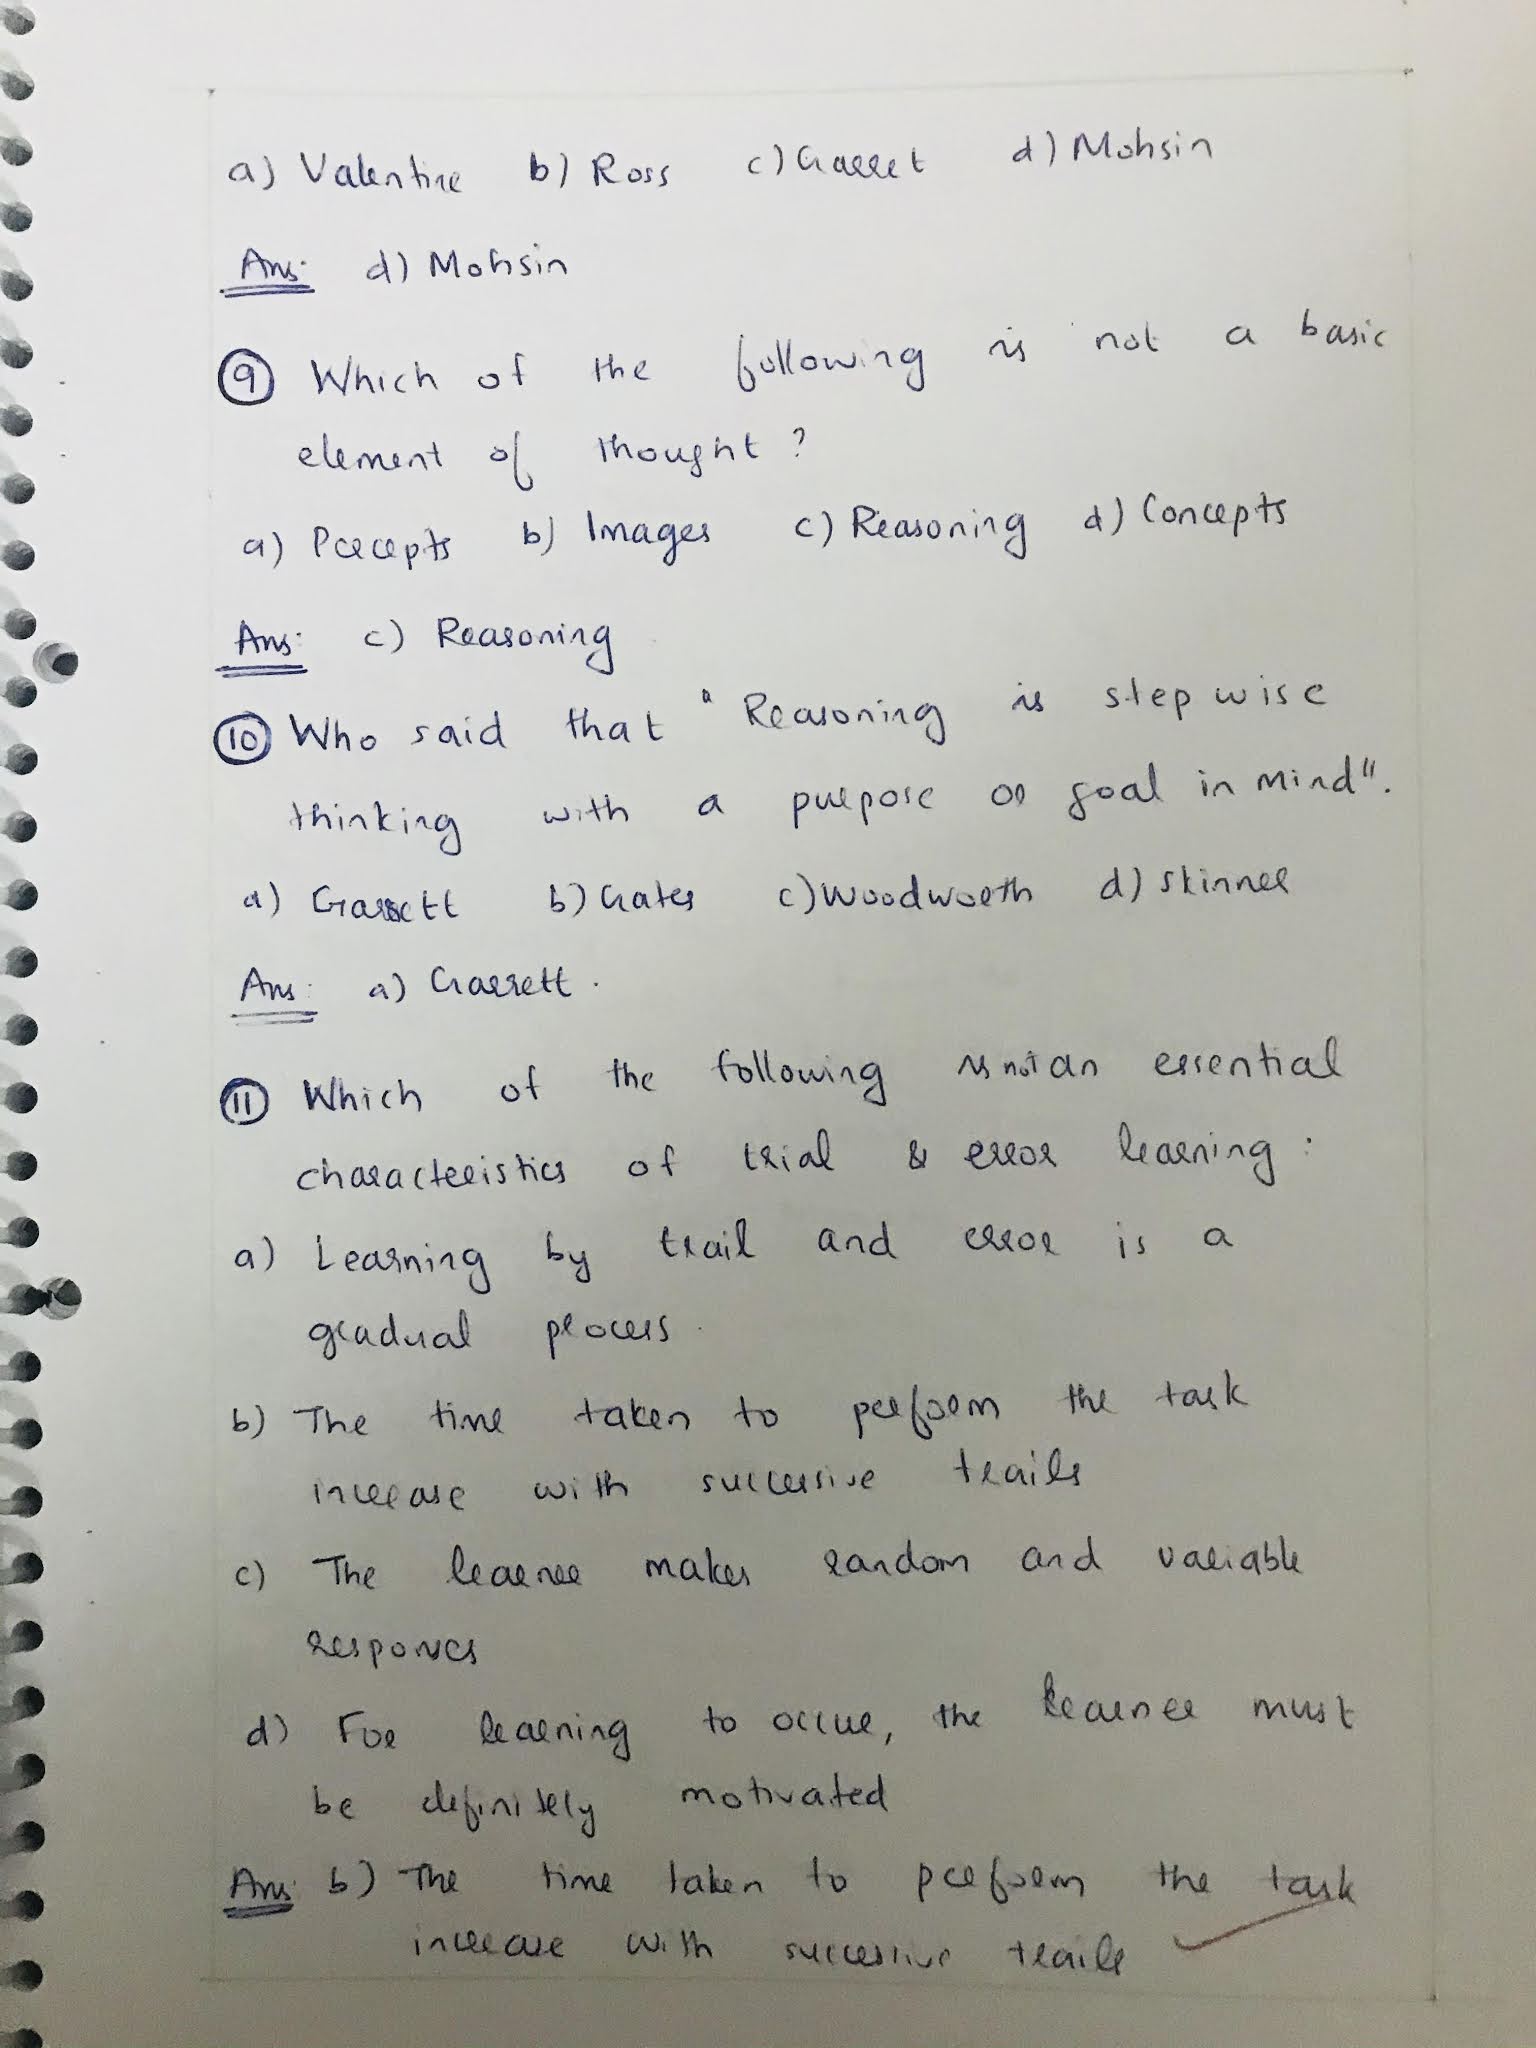 a) Valentine b) Ross c) Garret d) Mohsin
Ans: d) Mohsin
9 Which of the following is not a basic
element of thought ?
a) Percepts b) Images c) Reasoning d) Concepts
Ans: c) Reasoning
10 Who said that "Reasoning is stepwise
thinking with a purpose or goal in mind".
a) Garrett b) Gates c) Woodworth d) Skinner
Ans: a) Garrett.
11 Which of the following is not an essential
characteristics of trial & error learning :
a) Learning by trail and error is a
gradual process.
b) The time taken to perform the task
increase with successive trails
c) The learner makes random and variable
responces
d) For learning to occur, the learner must
be definitely motivated
Ans: b) The time taken to perform the task
increase with successive trails